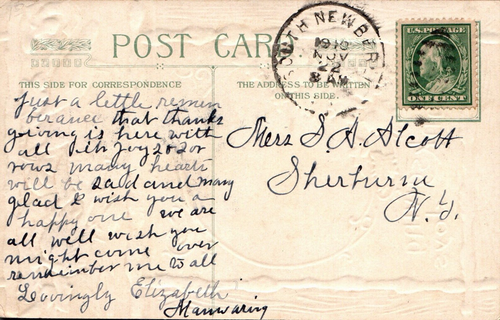 POST CARD
SOUTH NEW BERLIN
1910
NOV
22
8 AM
U.S. POSTAGE
ONE CENT
THIS SIDE FOR CORRESPONDENCE
THE ADDRESS TO BE WRITTEN
ON THIS SIDE.
Just a little remem
berance that thanks
giving is here with
all its joys or
rows many hearts
will be sad and many
glad I wish you a
happy one we are
all well wish you
might come over
remember me to all
Lovingly Elizabeth
Manwaring
Mers S. A. Alcott
Sherburne
N.Y.